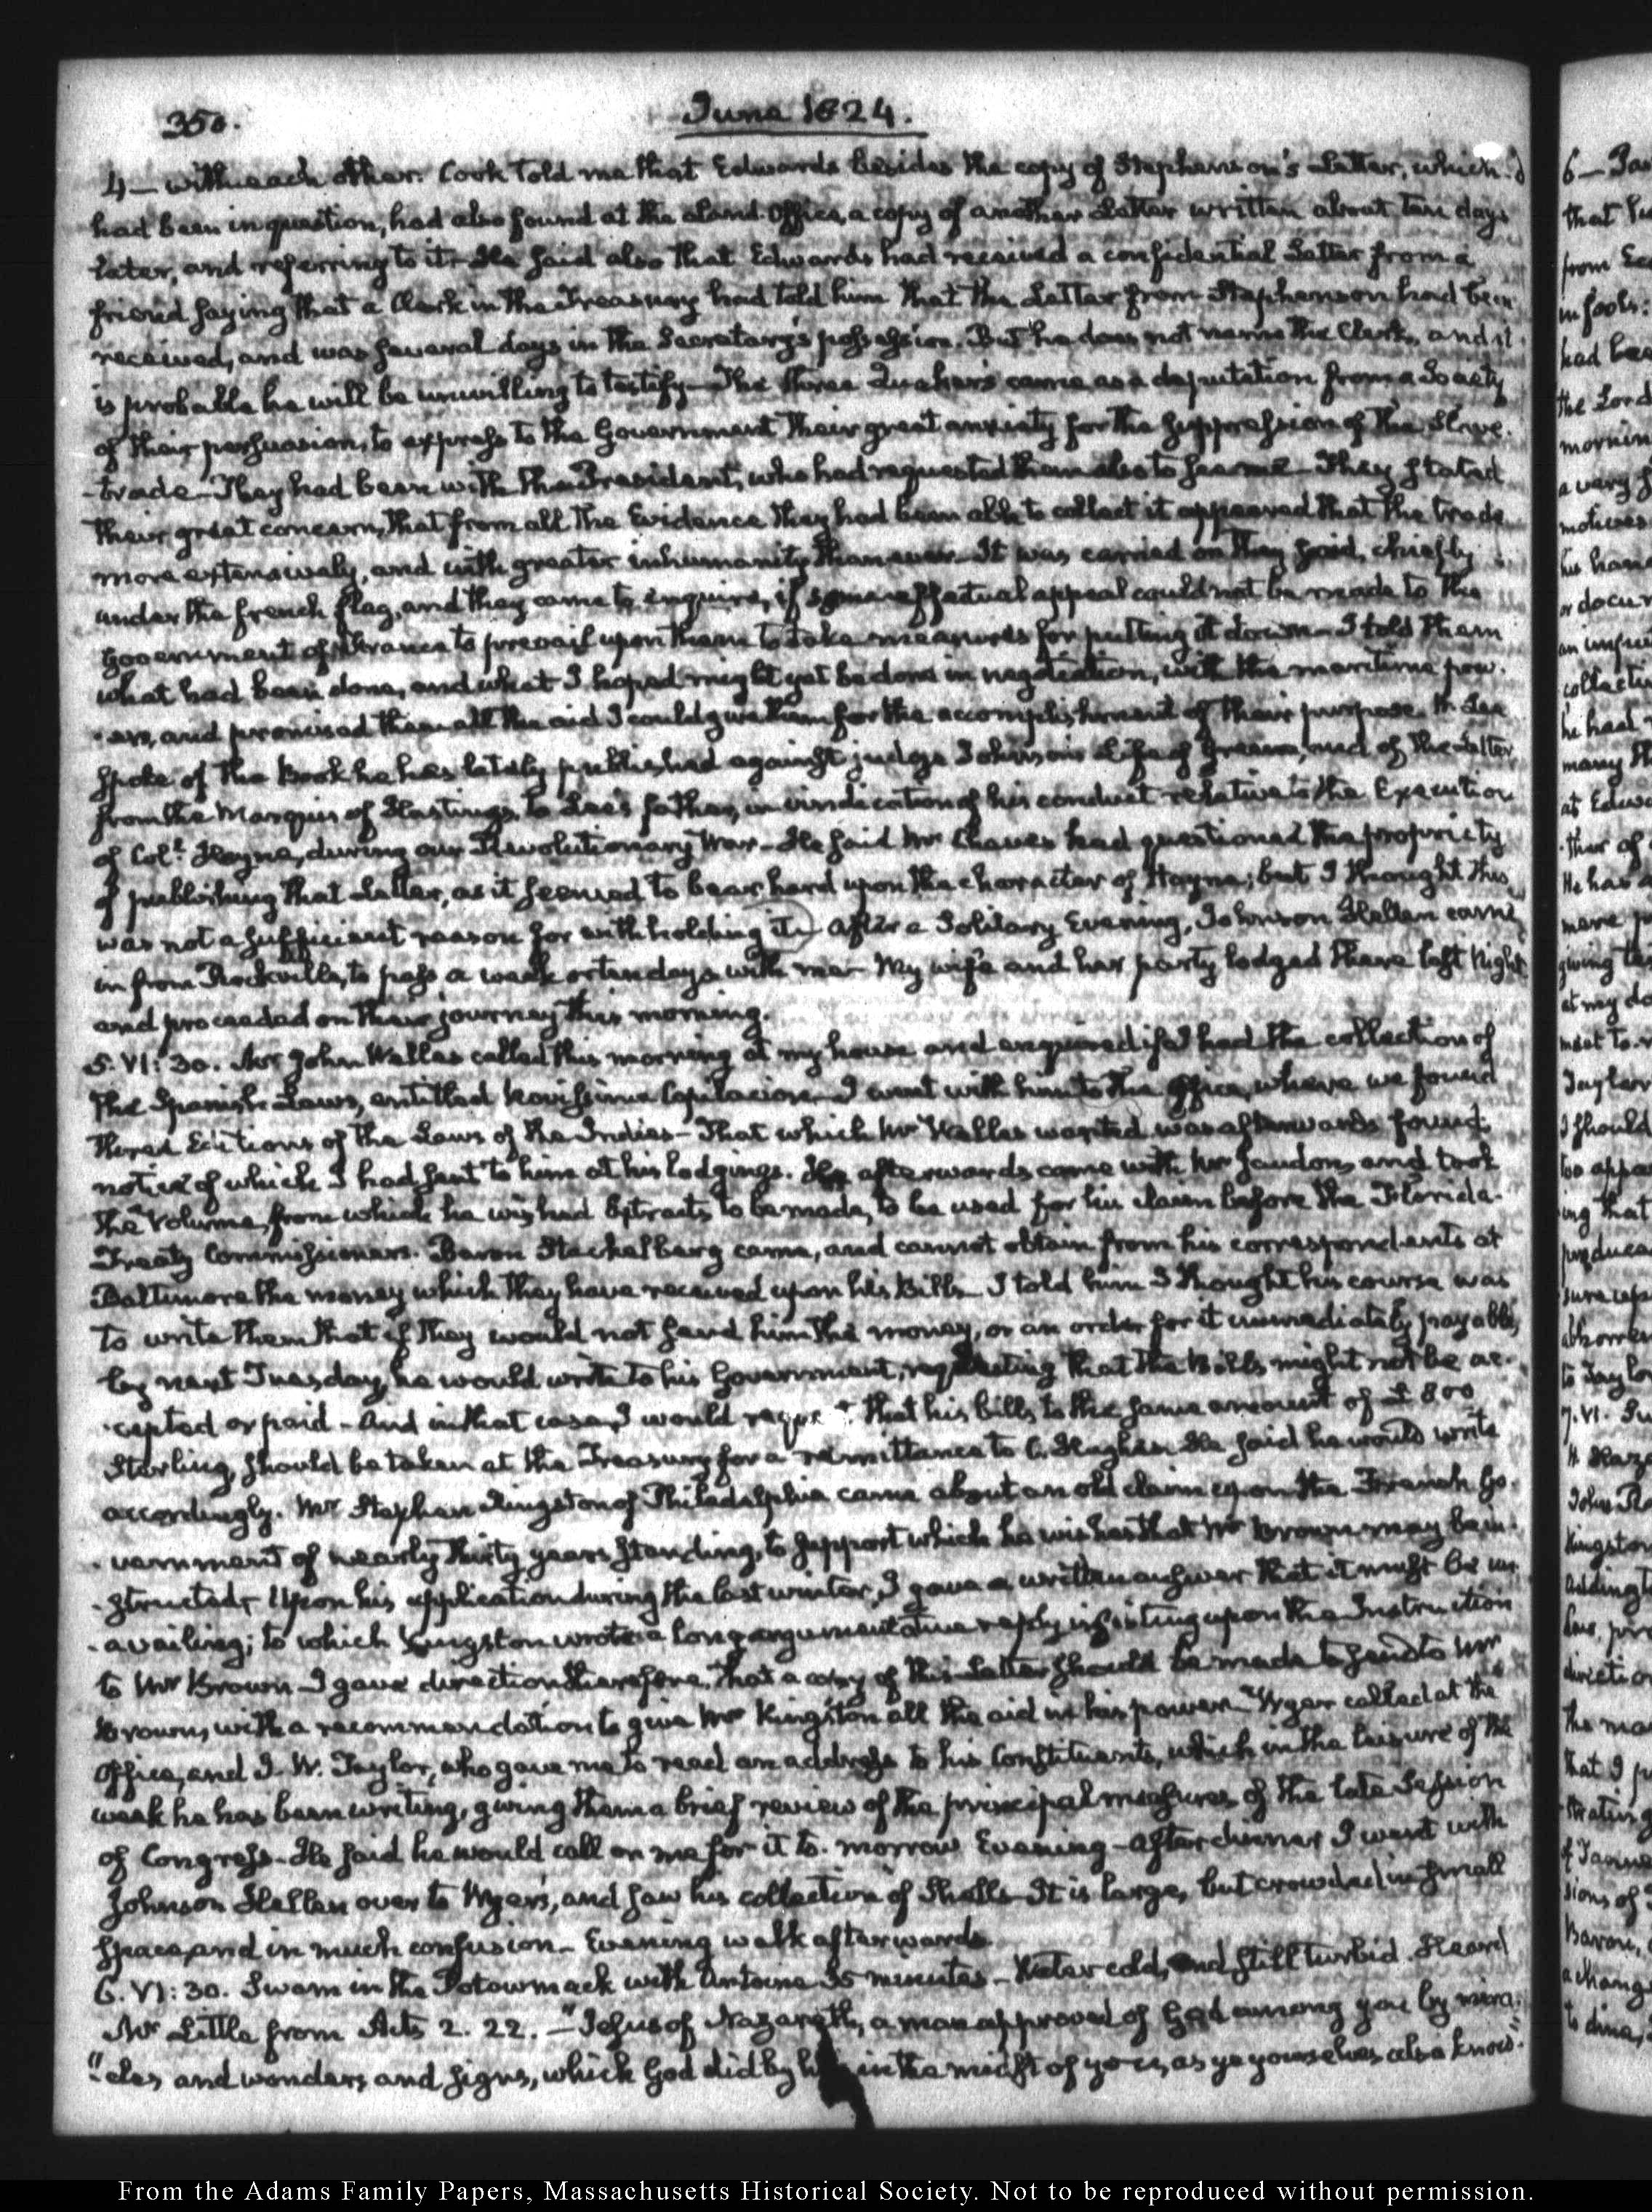 350.
June 1824.
4 — with each other. Cook told me that Edwards besides the copy of Stephenson's Letter, which
had been in question, had also found at the Land-Office, a copy of another Letter written about ten days
later, and referring to it — He said also that Edwards had received a confidential Letter from a
friend saying that a Clerk in the Treasury had told him that the Letter from Stephenson had been
received, and was several days in the Secretary's possession. But he does not name the Clerk, and it
is probable he will be unwilling to testify — The three Quakers came as a deputation from a Society
of their persuasion, to express to the Government their great anxiety for the suppression of the Slave-
-trade — They had been with the President, who had requested them also to see me — They stated
their great concern, that from all the Evidence they had been able to collect it appeared that the trade
more extensively, and with greater inhumanity than ever — It was carried on they said, chiefly
under the french flag, and they came to enquire, if some effectual appeal could not be made to the
Government of France to prevail upon them to take measures for putting it down — I told them
what had been done, and what I hoped might yet be done in negotiation, with the maritime pow-
-ers, and promised them all the aid I could give them for the accomplishment of their purpose. Mr Lee
spoke of the Book he has lately published against judge Johnson's Life of Greene, and of the Letter
from the Marquis of Hastings, to Lee's father, in vindication of his conduct relative to the Execution
of Coll. Hayne, during our Revolutionary War — He said Mr Cheves had questioned the propriety
of publishing that Letter, as it seemed to bear hard upon the character of Hayne; but I thought this
was not a sufficient reason for withholding it — After a Solitary Evening, Johnson Hellen came
in from Rockville, to pass a week or ten days with me — My wife and her party lodged there last Night
and proceeded on their journey this morning.
5. VI: 30. Mr John Welles called this morning at my house and enquired if I had the collection of
the Spanish Laws, entitled I went with him to the Office, where we found
three Editions of the Laws of the Indies — That which Mr Welles wanted was afterwards found,
notice of which I had sent to him at his lodgings. He afterwards came with Mr Jaudon, and took
the Volume, from which he wished Extracts to be made, to be used for his claim before the Florida-
Treaty Commissioners. Baron Stackelberg came, and cannot obtain from his correspondents at
Baltimore the money which they have received upon his Bills — I told him I thought his course was
to write them that if they would not send him the money, or an order for it immediately payable,
by next Tuesday, he would write to his Government, requesting that the Bills might not be ac-
-cepted or paid — And in that case, I would request that his bills to the same amount of £800
Sterling, should be taken at the Treasury for a remittance to C. Hughes. He said he would write
accordingly. Mr Stephen Kingston of Philadelphia came about an old claim upon the French Go-
-vernment of nearly thirty years standing, to support which he wishes that Mr Brown may be in-
-structed. Upon his application during the last winter, I gave a written answer that it must be un-
-availing; to which Kingston wrote a long argumentative reply insisting upon the Instruction
to Mr Brown — I gave direction therefore, that a copy of this Letter should be made to send to Mr
Brown, with a recommendation to give Mr Kingston all the aid in his power — Wyer called at the
Office, and J. W. Taylor, who gave me to read an address to his Constituents, which in the leisure of the
week he has been writing, giving them a brief review of the principal measures of the late Session
of Congress — He said he would call on me for it to-morrow Evening — After dinner I went with
Johnson Hellen over to Wyer's, and saw his collection of Shells — It is large, but crowded in small
space, and in much confusion — Evening walk afterwards.
6. VI: 30. Swam in the Potowmack with Antoine 35 minutes — Water cold, and still turbid. Heard
Mr Little from Acts 2. 22. — "Jesus of Nazareth, a man approved of God among you by mira-
"-cles and wonders and signs, which God did by him in the midst of you, as ye yourselves also know"
From the Adams Family Papers, Massachusetts Historical Society. Not to be reproduced without permission.